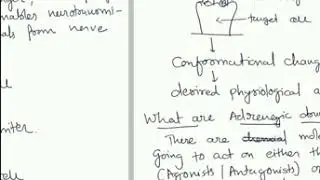 nables neurotransmi-
als from nerve
target cell
Conformational chang
desired physiological a
What are Adrenegic
There are molec
Going to act on either th
(Agonists/Antagonists) o